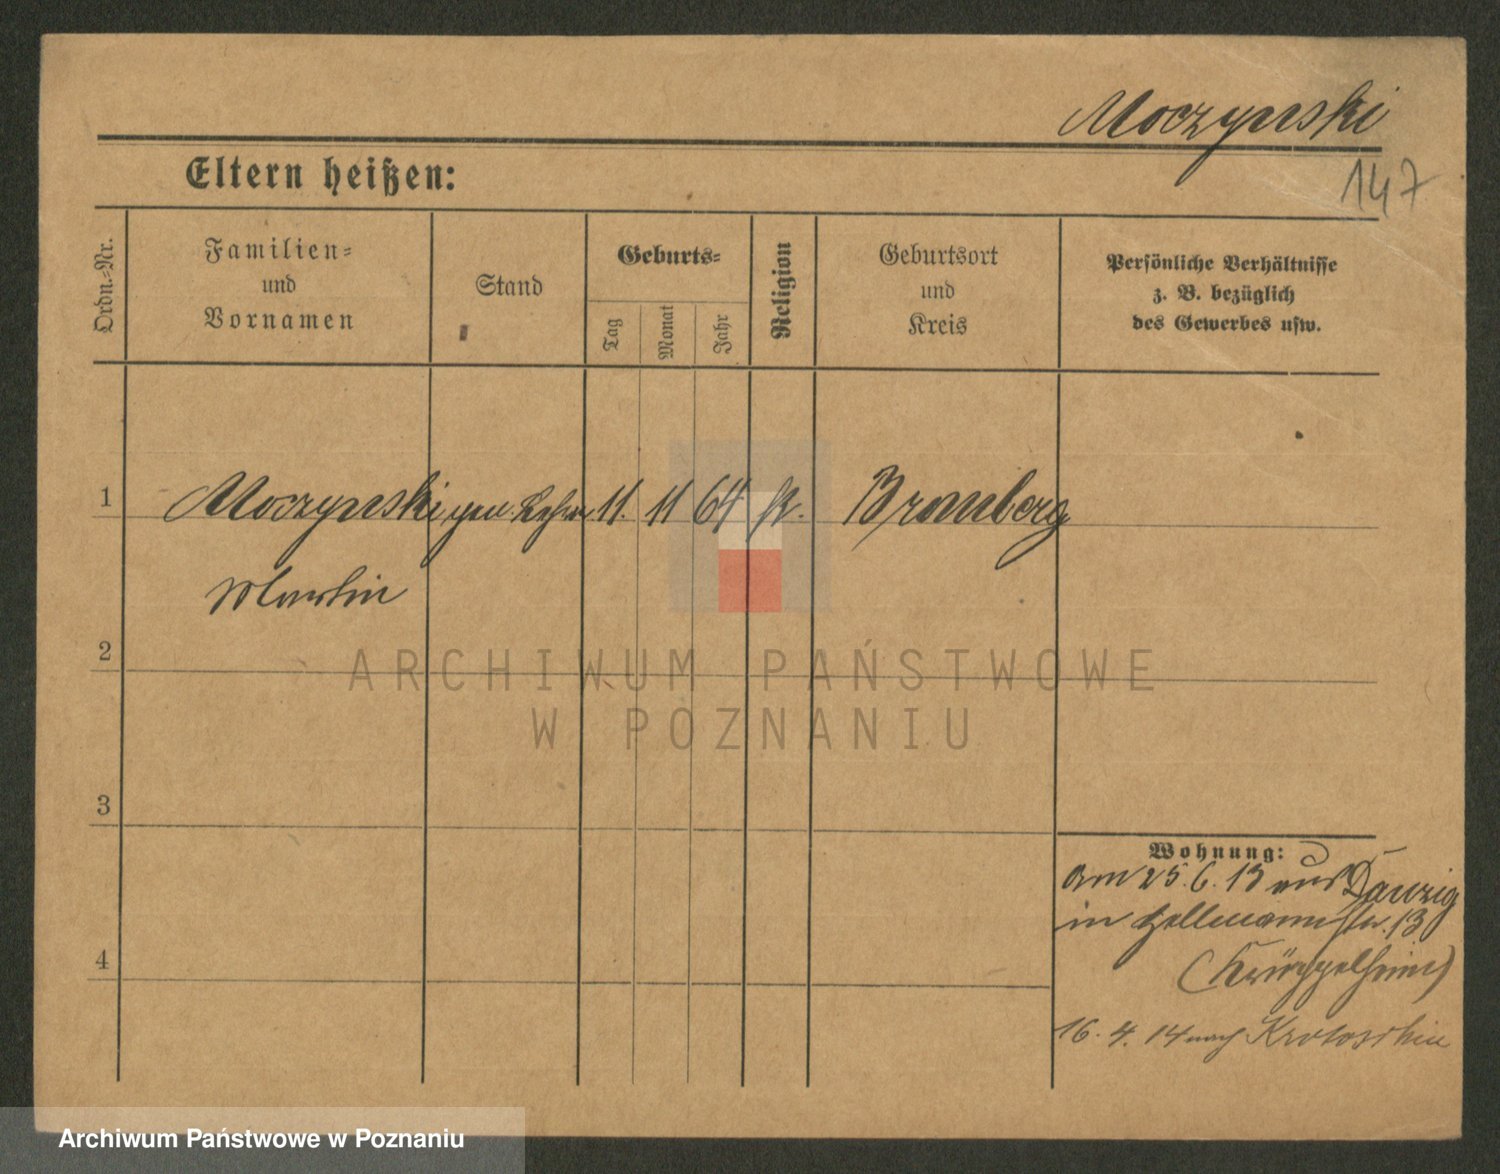 Moczynski
147
Eltern heißen:
Ordn.-Nr.
Familien-
und
Vornamen
Stand
Geburts-
Tag
Monat
Jahr
Religion
Geburtsort
und
Kreis
Persönliche Verhältnisse
z. B. bezüglich
des Gewerbes usw.
1 Moczynski gen. 11. 11 64 k. Bromberg
Martin
2
ARCHIWUM PAŃSTWOWE
W POZNANIU
3
Wohnung:
am 25. 6. 13 aus Danzig
in Hellmannstr. 13
(Krüppelheim)
4
16. 4. 14 nach Krotoschin
Archiwum Państwowe w Poznaniu